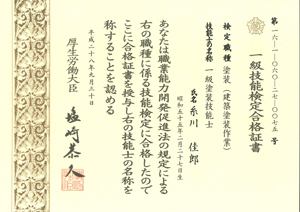 第一六-一-〇六〇-二七-〇〇七五号
一級技能検定合格証書
検定職種 塗装(建築塗装作業)
技能士の名称 一級塗装技能士
氏名 糸川 佳郎
昭和五十五年二月二十七日生
あなたは職業能力開発促進法の規定による
右の職種に係る技能検定に合格したので
ここに合格証書を授与し右の技能士の名称を
称することを認める
平成二十八年九月三十日
厚生労働大臣
塩崎恭久